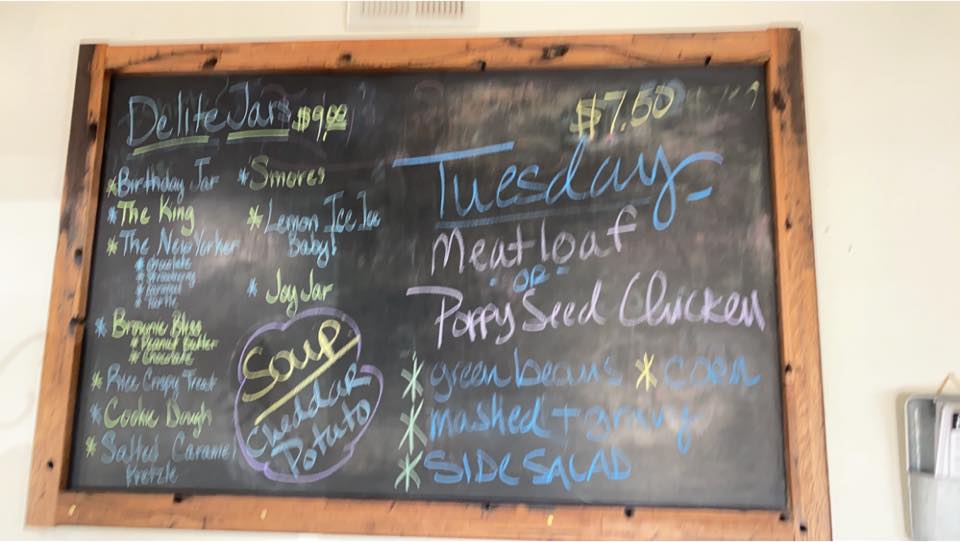 Delite Jars $9.00
*Birthday Jar
*The King
*The New Yorker
*Chocolate
*Strawberry
*Caramel
*Turtle
*Brownie Bliss
*Peanut Butter
*Chocolate
*Rice Crispy Treat
*Cookie Dough
*Salted Caramel
Pretzle
*S'mores
*Lemon Ice Ice
Baby!
*Joy Jar
Soup
Cheddar
Potato
$7.50
Tuesday-
Meatloaf
-OR-
Poppy Seed Chicken
*green beans *corn
*mashed + gravy
*SIDE SALAD